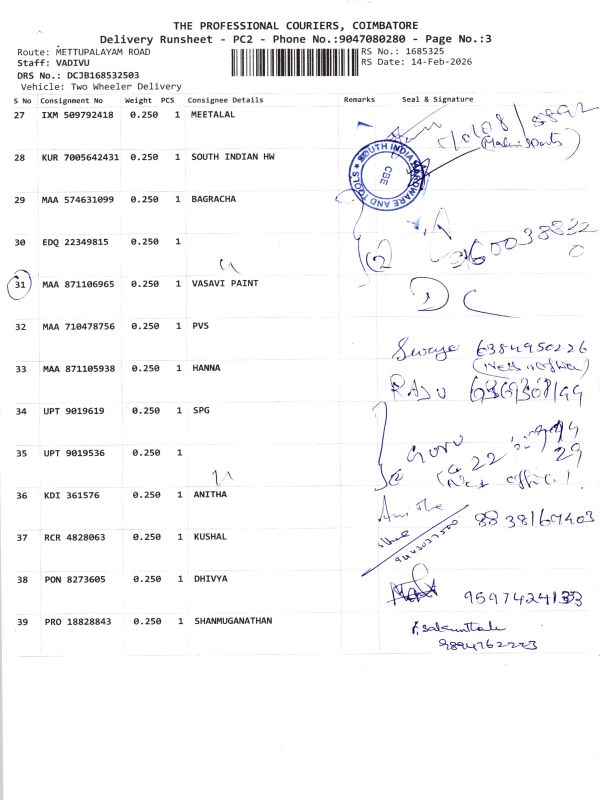 THE PROFESSIONAL COURIERS, COIMBATORE
Delivery Runsheet - PC2 - Phone No.:9047080280 - Page No.:3
Route: METTUPALAYAM ROAD
RS No.: 1685325
Staff: VADIVU
RS Date: 14-Feb-2026
DRS No.: DCJB168532503
Vehicle: Two Wheeler Delivery
S No Consignment No Weight PCS Consignee Details Remarks Seal & Signature
27 IXM 509792418 0.250 1 MEETALAL
28 KUR 7005642431 0.250 1 SOUTH INDIAN HW
SOUTH INDIA HARDWARE AND TOOLS
CBE
29 MAA 574631099 0.250 1 BAGRACHA
30 EDQ 22349815 0.250 1
31 MAA 871106965 0.250 1 VASAVI PAINT
DC
32 MAA 710478756 0.250 1 PVS
6384950226
33 MAA 871105938 0.250 1 HANNA
RAJU
34 UPT 9019619 0.250 1 SPG
35 UPT 9019536 0.250 1
36 KDI 361576 0.250 1 ANITHA
8838167403
37 RCR 4828063 0.250 1 KUSHAL
38 PON 8273605 0.250 1 DHIVYA
9597424133
39 PRO 18828843 0.250 1 SHANMUGANATHAN
9894762223